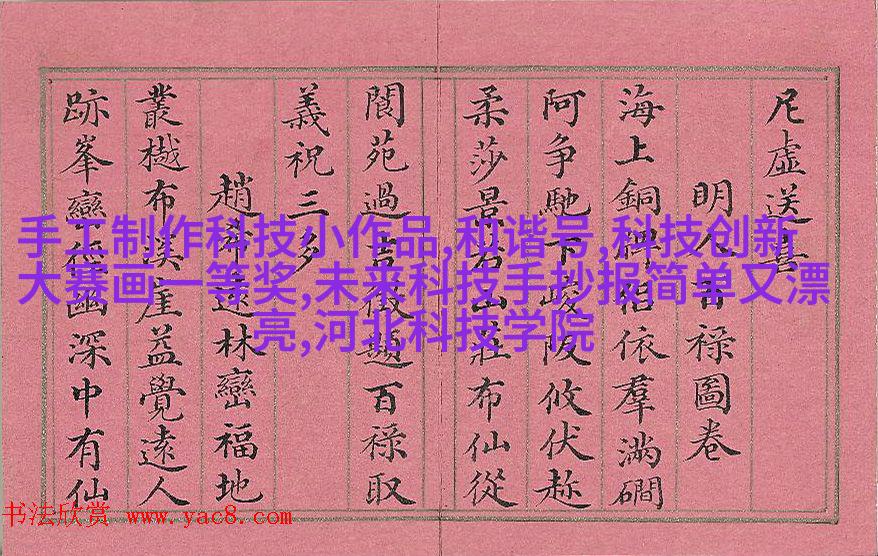 尼虛送喜
明人百祿圖卷
海上銅牌依羣滿磵
阿爭馳下峻阪攸伏趂
柔莎景山莊布仙從
閬苑過吉徵題百祿取
義祝三多
趙遠林巒福地
叢樾布崖益覺遠人
跡峯巒幽深中有仙
手工制作科技小作品,和谐号,科技创新
大赛画一等奖,未来科技手抄报简单又漂
亮,河北科技学院
书法欣赏 www.yac8.com